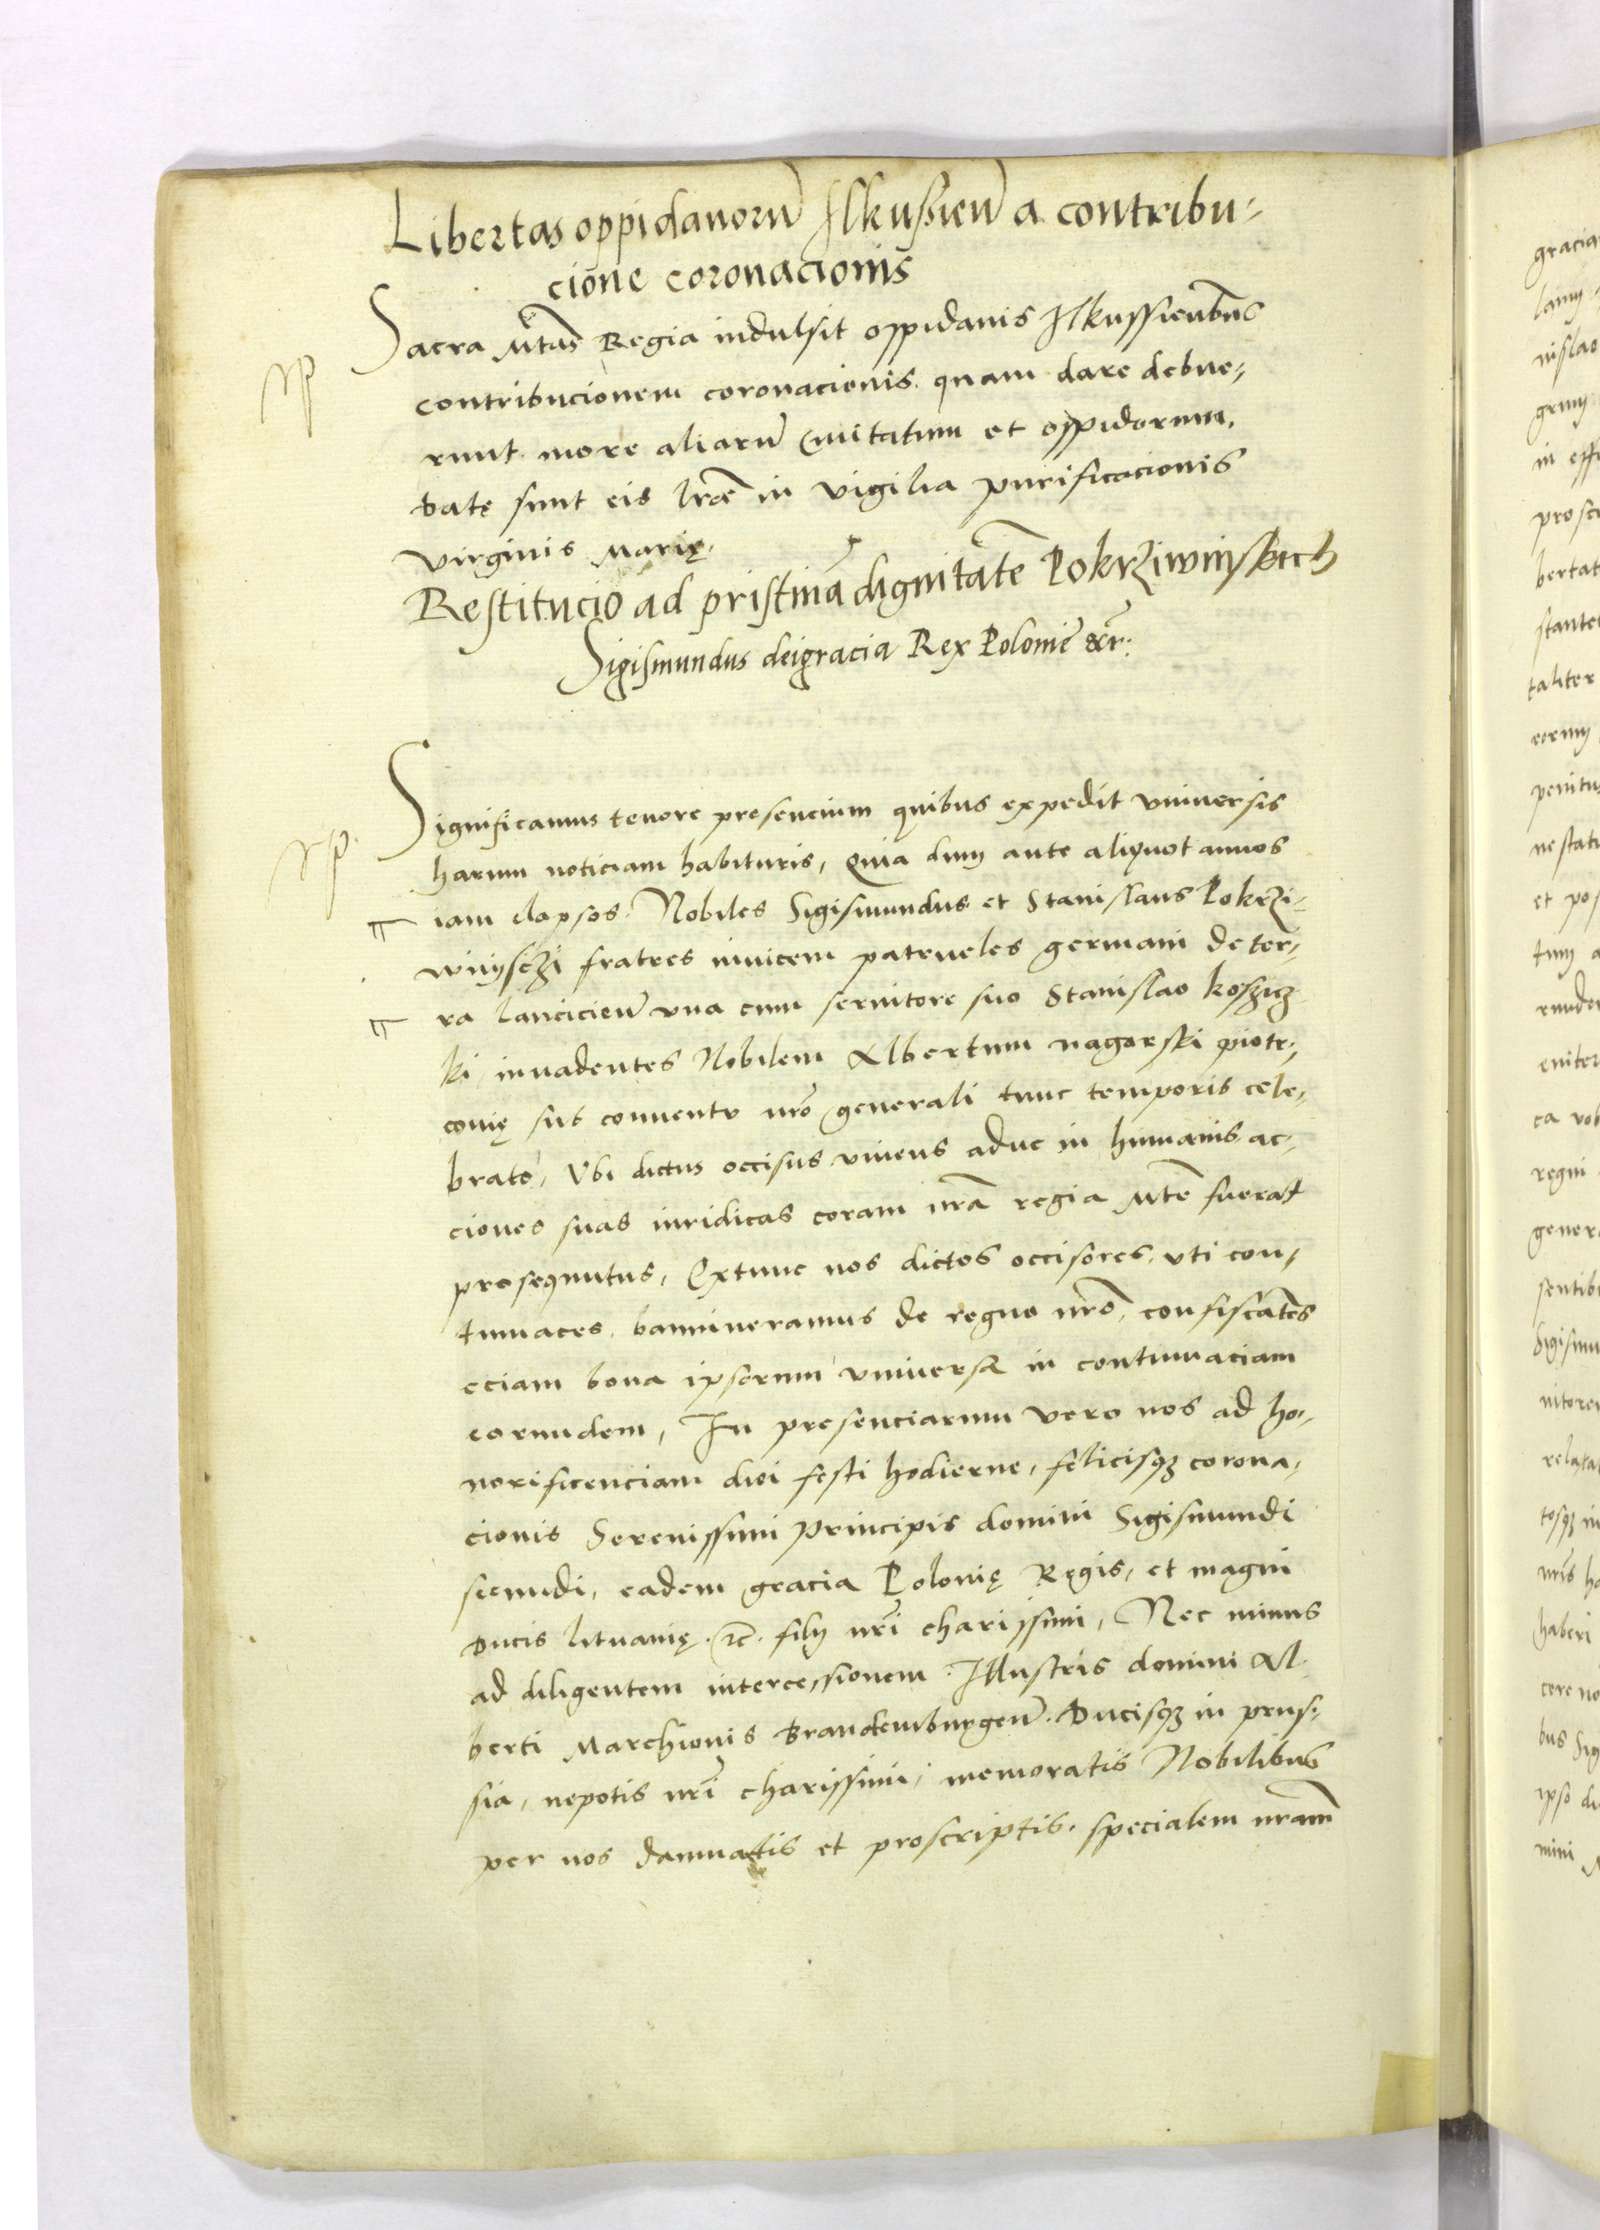 Libertas oppidanorũ Ilkusien̄ a contribu-
cione coronacionis
Sacra Mtãs Regia indulsit oppidanis Ilkussienbus
contribucionem coronacionis quam dare debue-
runt more aliarũ Civitatum et oppidorum.
datę sunt eis lrẽ in vigilia purificacionis
virginis Marię.
Restitucio ad pristinã dignitatẽ Pokrziwnyskich
Sigismundus dei gracia Rex Polonie &c̃:
Significamus tenore presencium quibus expedit universis
harum noticiam habituris, Quia dum ante aliquot annos
iam elapsos. Nobiles Sigismundus et Stanislaus Pokrzi-
wnysczi fratres invicem patrueles germani de ter-
ra lancicień una cum servitore suo Stanislao
ki, invadentes Nobilem Albertum nagorski piotr-
covię sub conventu nrõ generali tunc temporis cele-
brato, Ubi dictus occisus vivens aduc in humanis ac-
ciones suas iuridicas coram nrã regia Mtẽ fuerat
prosequutus, Extunc nos dictos occisores, uti con-
tumaces, banniveramus de regno nrõ, confiscãtes
eciam bona ipsorum universa in contumaciam
eorundem, In presenciarum vero nos ad ho-
norificenciam diei festi hodierne, felicisqz corona-
cionis Serenissimi Principis domini Sigismundi
secundi, eadem gracia Polonię Regis, et magni
Ducis lituanię. &c̃. filij nrĩ charissimi, Nec minus
ad diligentem intercessionem Illustris domini Al-
berti Marchionis Brandemburgeñ. Ducisqz in prus-
sia, nepotis nrĩ charissimi, memoratis Nobilibus
per nos damnatis et proscriptis, specialem nram̃